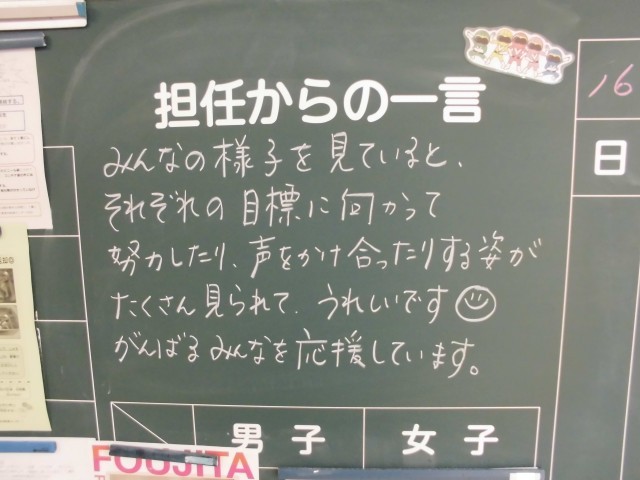 担任からの一言
みんなの様子を見ていると、
それぞれの目標に向かって
努力したり、声をかけ合ったりする姿が
たくさん見られて、うれしいです
がんばるみんなを応援しています。
16
日
男子
女子
FOUJITA